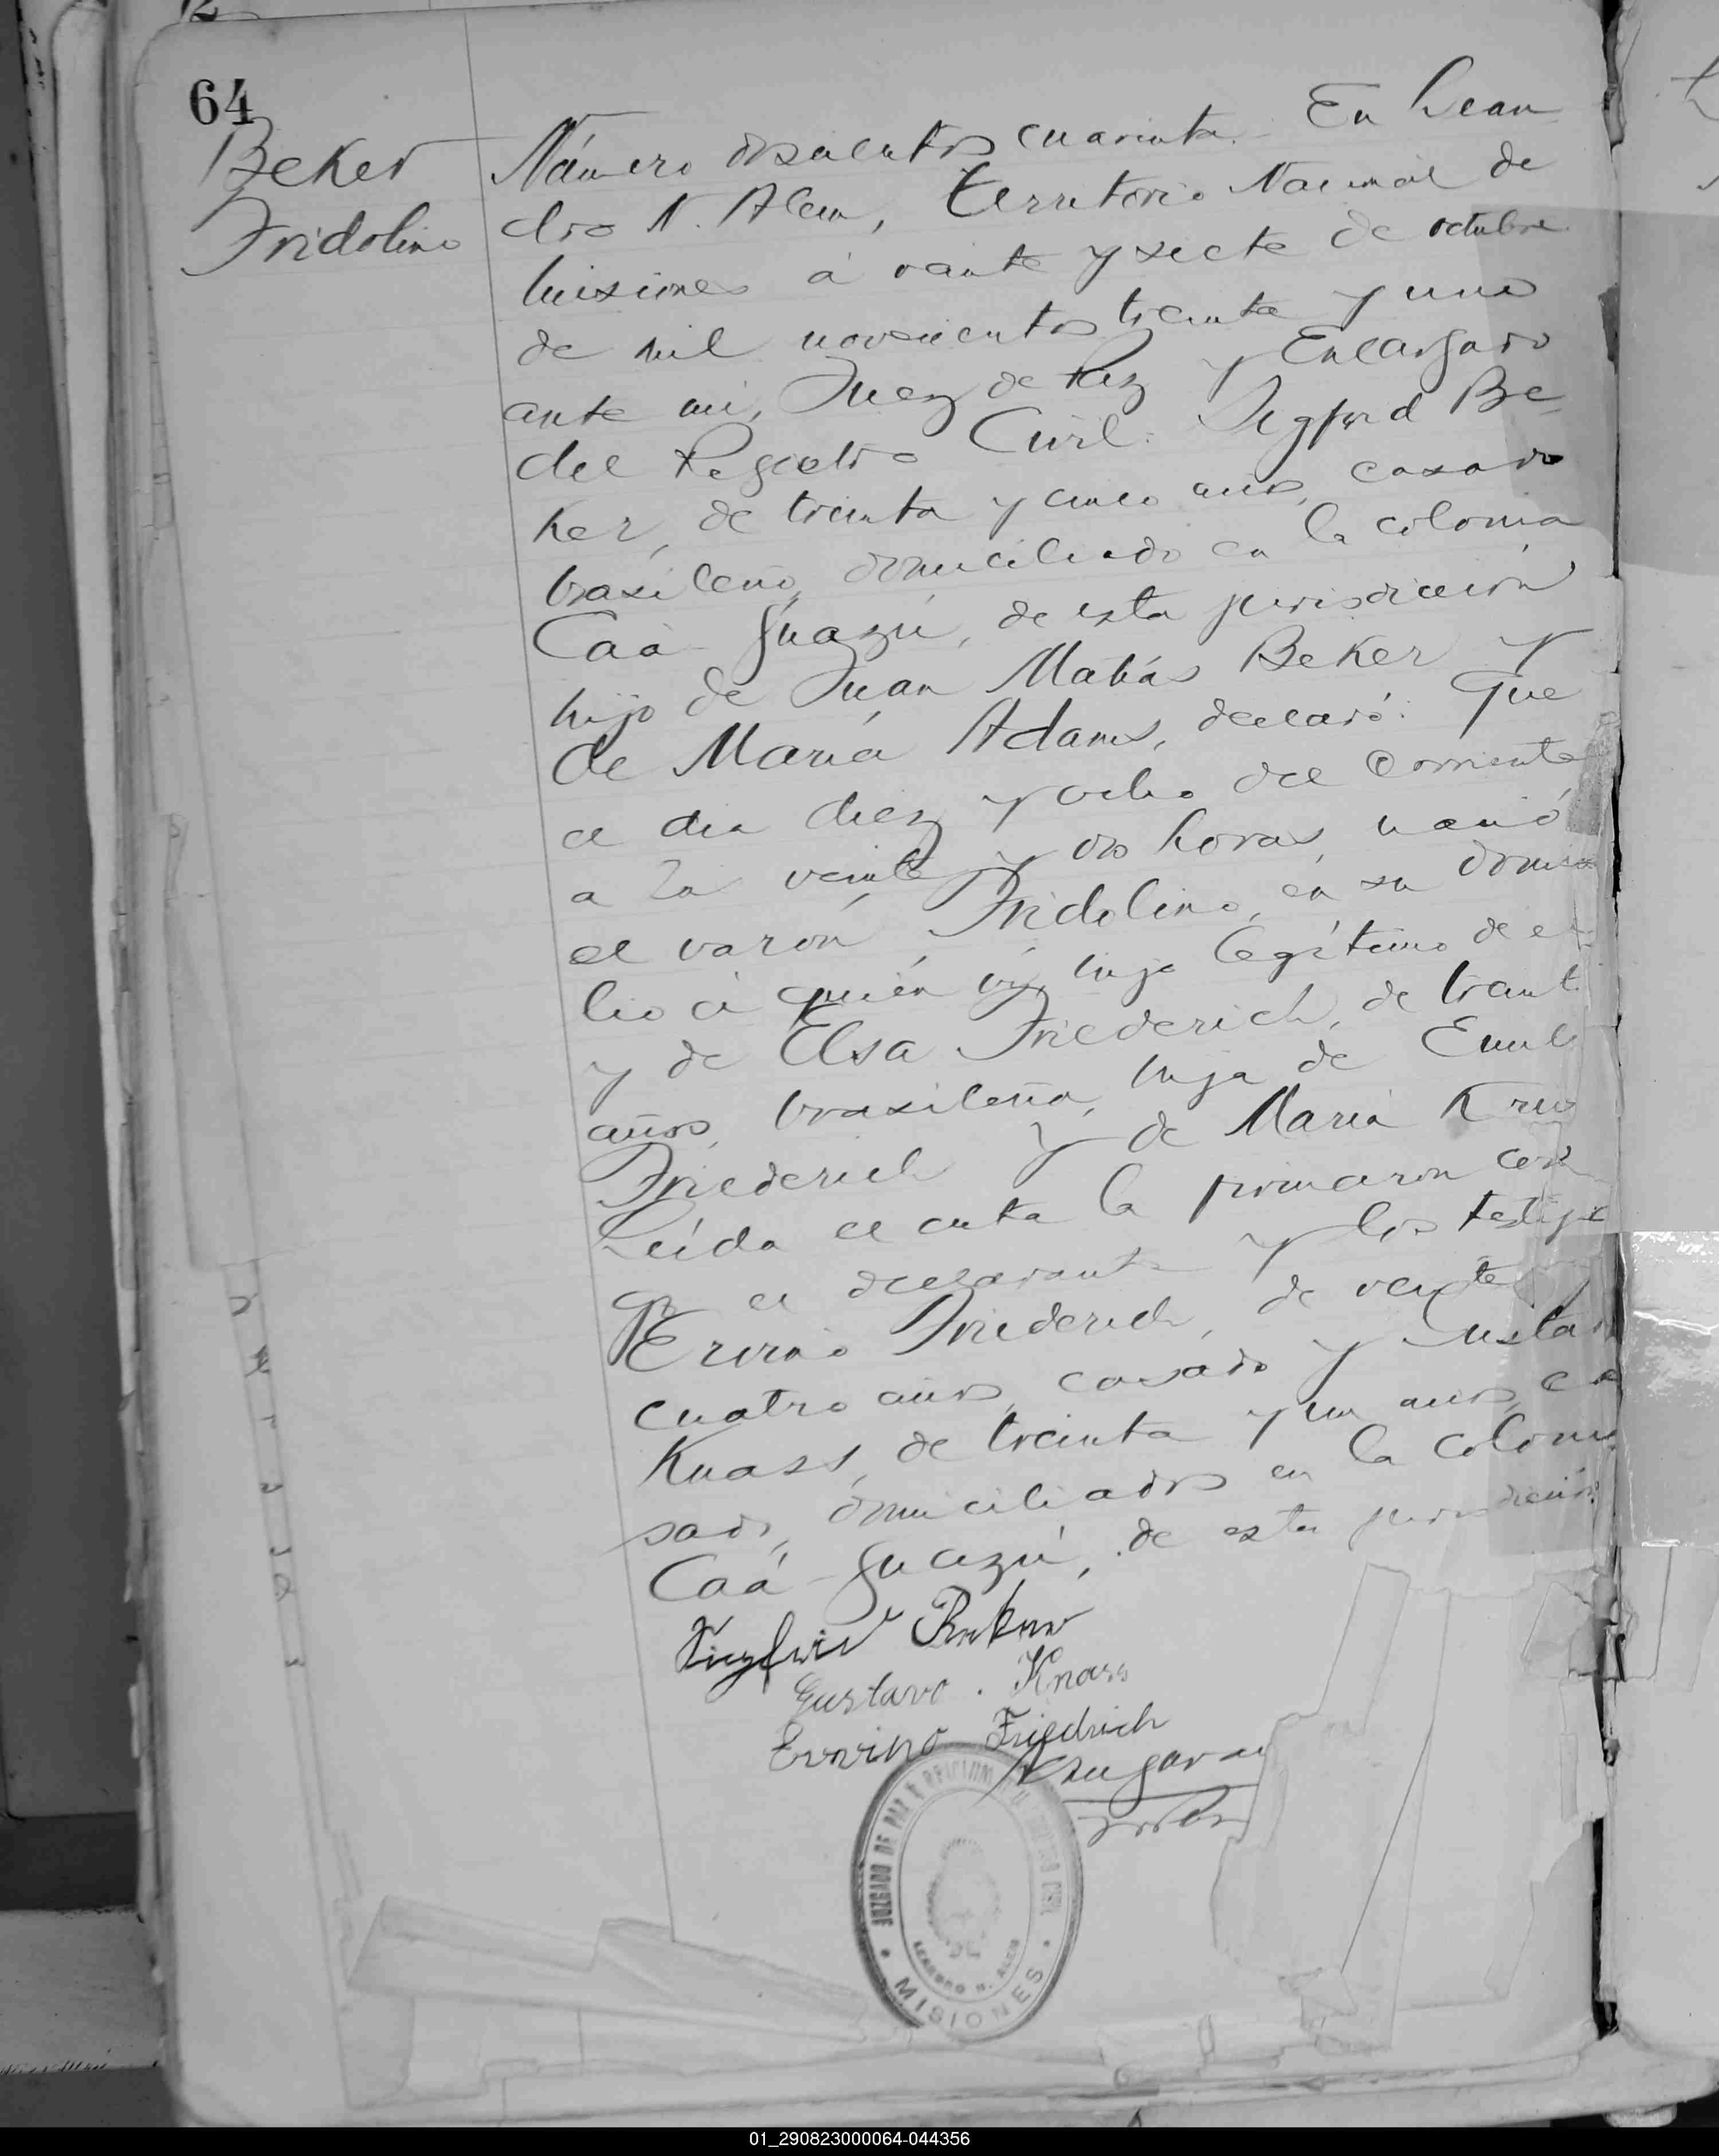 64
Beker
Fridolino
Número doscientos cuarenta. En Lean
dro N. Alem, Territorio Nacional de
Misiones á veinte y siete de octubre
de mil novecientos treinta y uno
ante mí, Juez de Paz y Encargado
del Registro Civil. Sigfrid Be-
ker, de treinta y cinco años, casado
brasileño, domiciliado en la colonia
Caá-Guazú, de esta jurisdicción
hijo de Juan Matías Beker y
de María Adams, declaró: Que
el dia diez y ocho del corriente
a las veinte y dos horas, nació
el varón, Fridolino, en su domici
lio á quién vi, hijo legítimo de el
y de Elsa Friederich, de treint
años, brasileña, hija de Emil
Friederich y de María
Leída el acta la firmaron con
go el declarante y los testigo
Ervino Friederich, de veinte y
cuatro años, casado y Gustav
Knass, de treinta y un años, ca
sado, domiciliados en la coloni
Caá-Guazú, de esta jurisdicción
Sigfrid Beker
Gustavo. Knass
Ervino Friedrich
JUZGADO DE PAZ Y REGISTRO CIVIL
LEANDRO N. ALEM
MISIONES
01_290823000064-044356